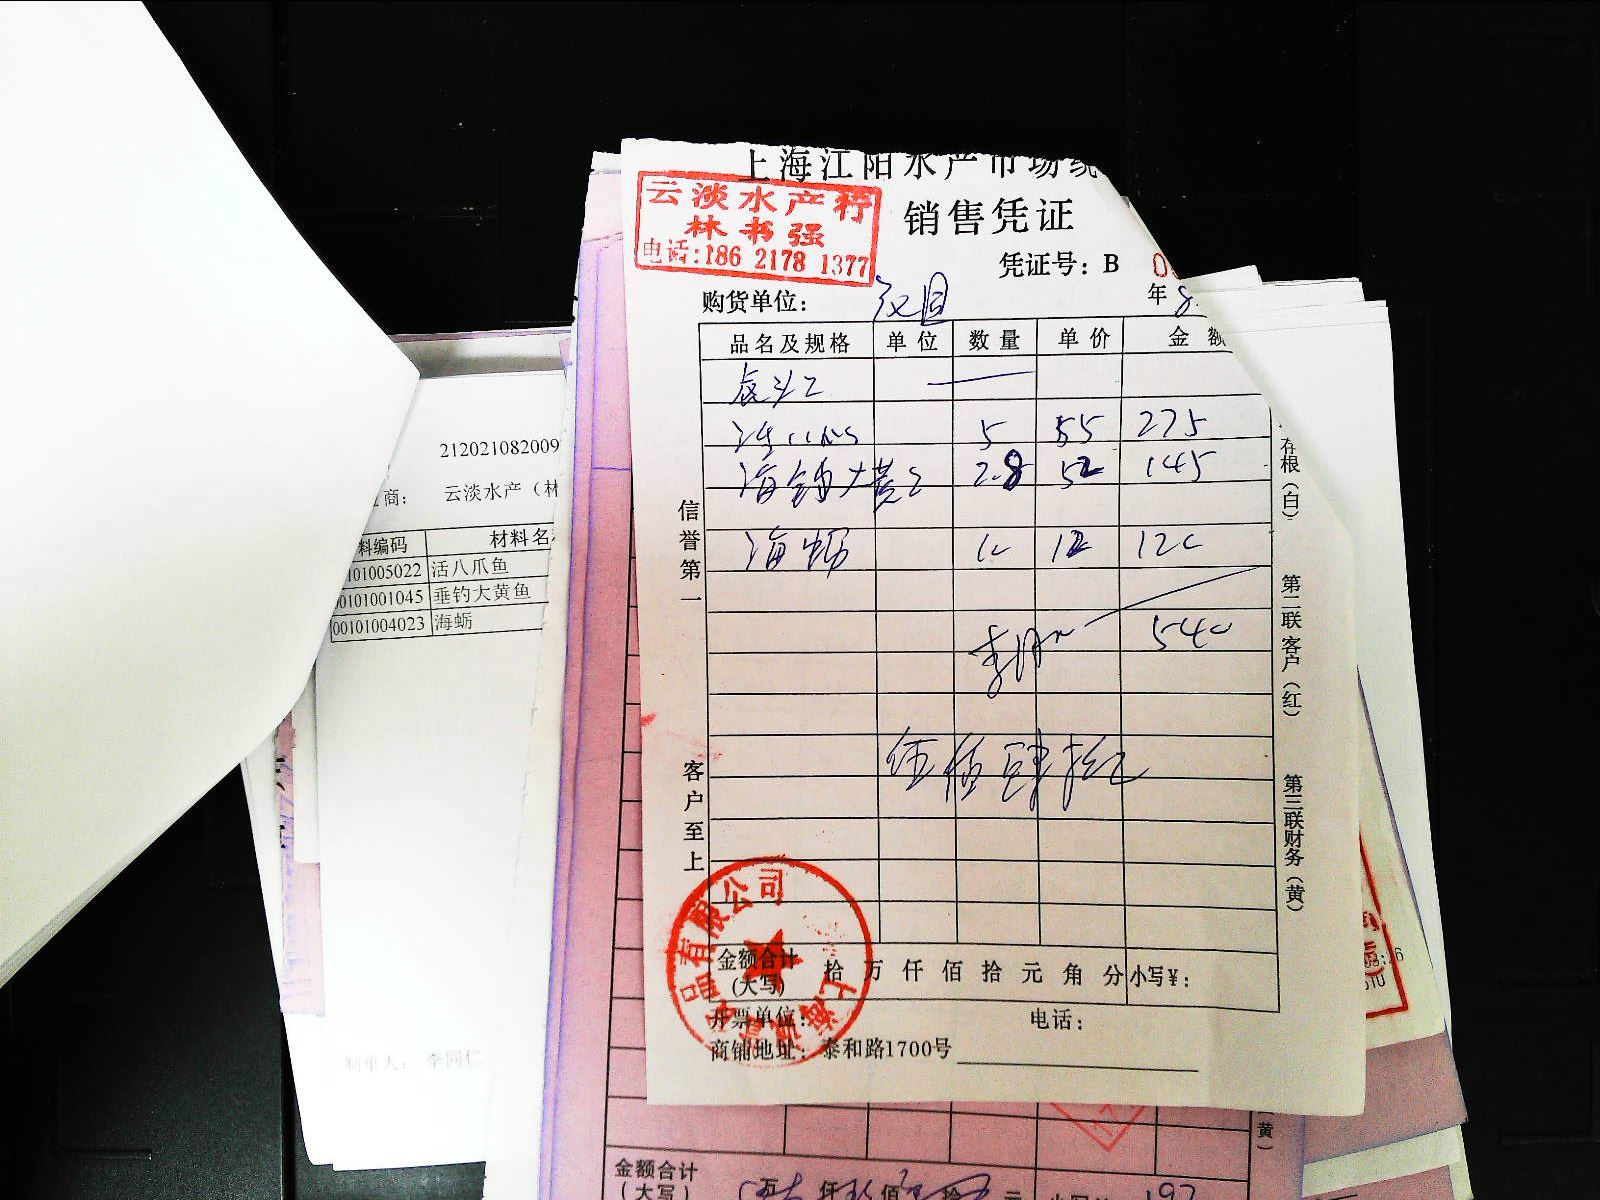 上海江阳水产市场统
云淡水产行
林书强
电话:186 2178 1377
销售凭证
凭证号：B
购货单位：
年 8
品名及规格 单位 数量 单价 金额
5 55 275
海钓大黄 2.8 52 145
海蛎 10 12 120
540
伍佰肆拾元
信誉第一
客户至上
存根（白）
第二联客户（红）
第三联财务（黄）
金额合计
(大写)
拾 万 仟 佰 拾 元 角 分 小写￥：
开票单位：
电话：
商铺地址：泰和路1700号
品有限公司
上海
212021082009
商： 云淡水产（林
料编码 材料名称
101005022 活八爪鱼
00101001045 垂钓大黄鱼
00101004023 海蛎
制单人： 李同仁
金额合计
（大写）
万 仟 佰 拾 元
197
黄）